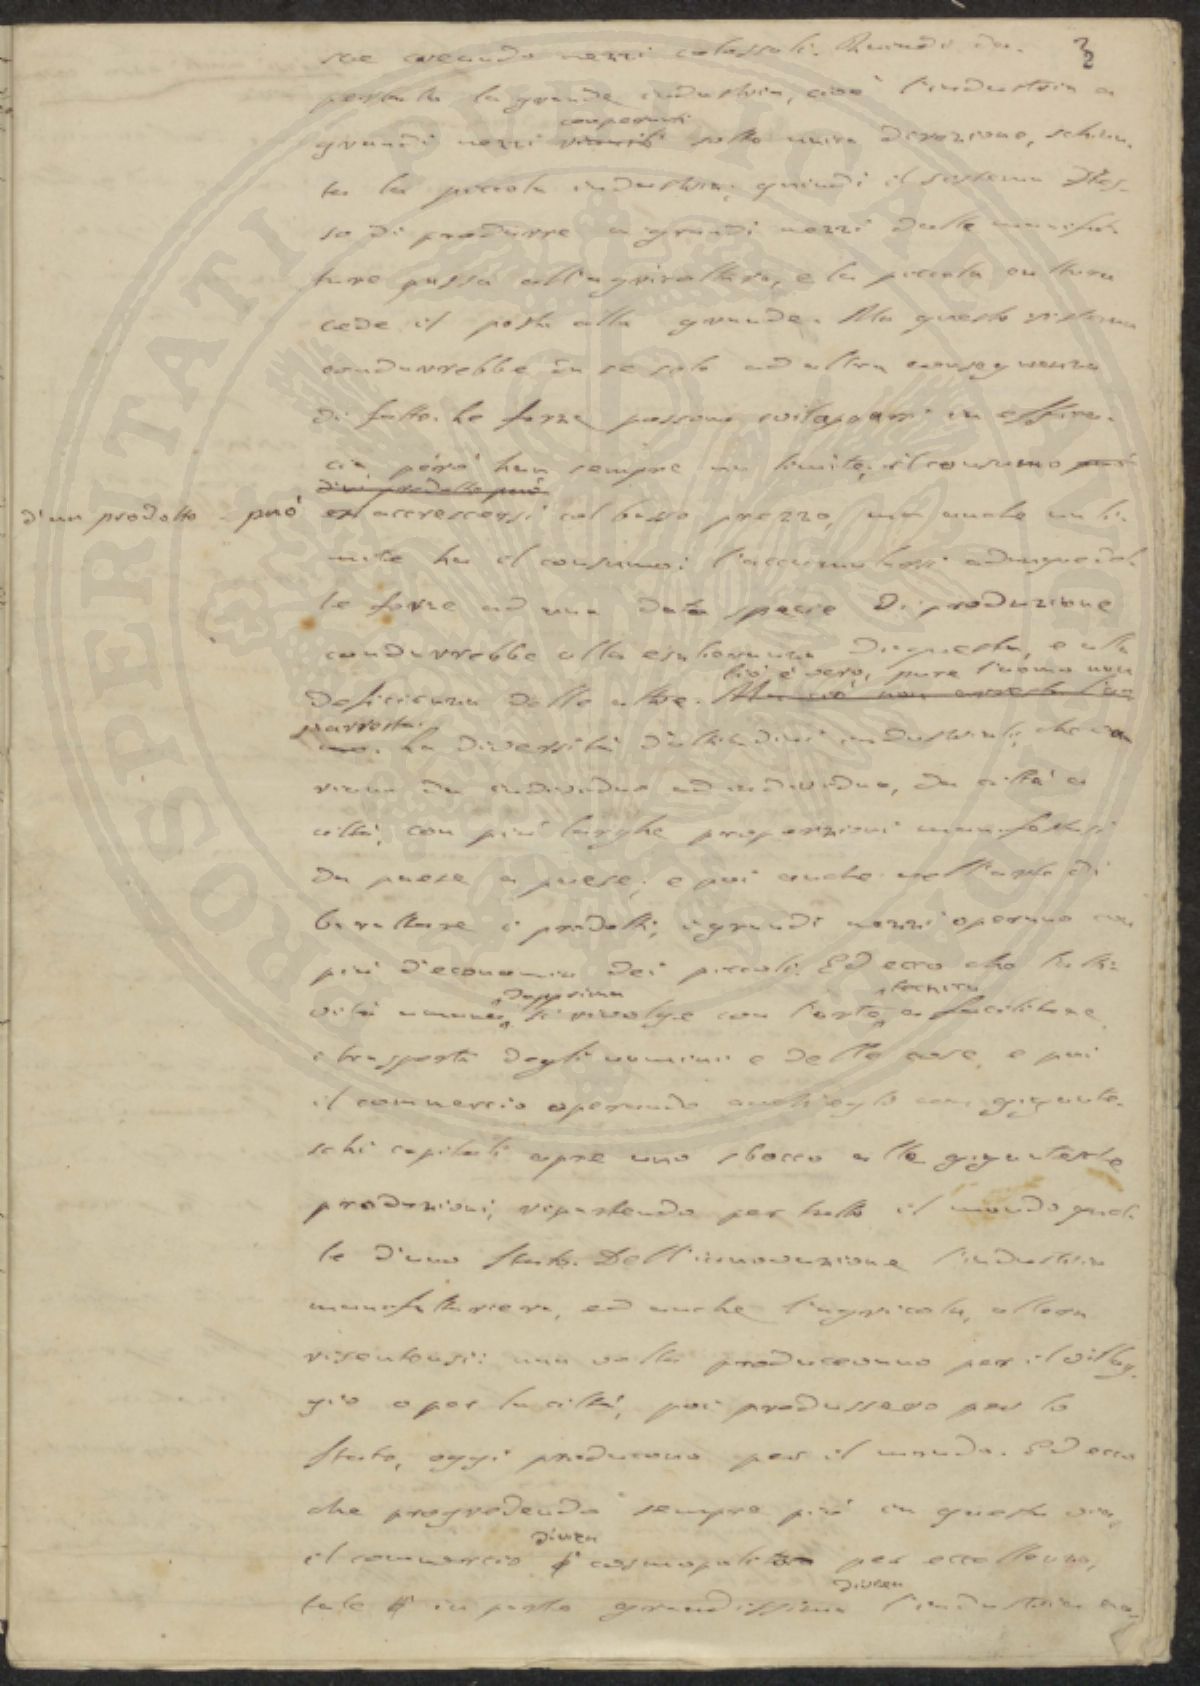 3
2
sce creando mezzi colossali. Quindi da-
pertutto la grande industria, cioè l'industria a
cooperanti
grandi mezzi riuniti sotto unica direzione, schian-
ta la piccola industria; quindi il sistema stes-
so di produrre a grandi mezzi dalle manifat-
ture passa all'agricoltura, e la piccola cultura
cede il posto alla grande. Ma questo sistema
condurrebbe in se solo ad altra conseguenza
di fatto. Le forze possono svilupparsi in effica-
cia, però han sempre un limite; il consumo può
di un prodotto può
d'un prodotto - può accrescersi col basso prezzo, ma anche un li-
mite ha il consumo: l'accumularsi adunque del-
le forze ad una data specie di produzione
condurrebbe alla esuberanza di questa, e alla
Ciò è vero, pure l'uomo non
deficienza delle altre. Ma ciò non arresta l'uo
s'arresta.
mo. La diversità d'attitudini industriali, che va
riano da individuo ad individuo, da città a
città, con più larghe proporzioni manifestasi
da paese a paese; e poi anche nell'arte di
barattare i prodotti, i grandi mezzi operano con
più d'economia dei piccoli. Ed ecco che l'atti-
dapprima tecnica
vità umana si rivolge con l'arte a facilitare
i trasporti degli uomini e delle cose, e poi
il commercio operando anch'egli con gigante-
schi capitali apre uno sbocco alle gigantesche
produzioni, ripartendo per tutto il mondo quel-
le d'uno Stato. Dell'innovazione l'industria
manifatturiera, ed anche l'agricola, allora
risentonsi: una volta producevano per il villag-
gio o per la città, poi produssero per lo
Stato, oggi producono per il mondo. Ed ecco
che progredendo sempre più in questa via,
divien
il commercio è cosmopolita per eccellenza,
divien
tale è in parte grandissima l'industria ma-